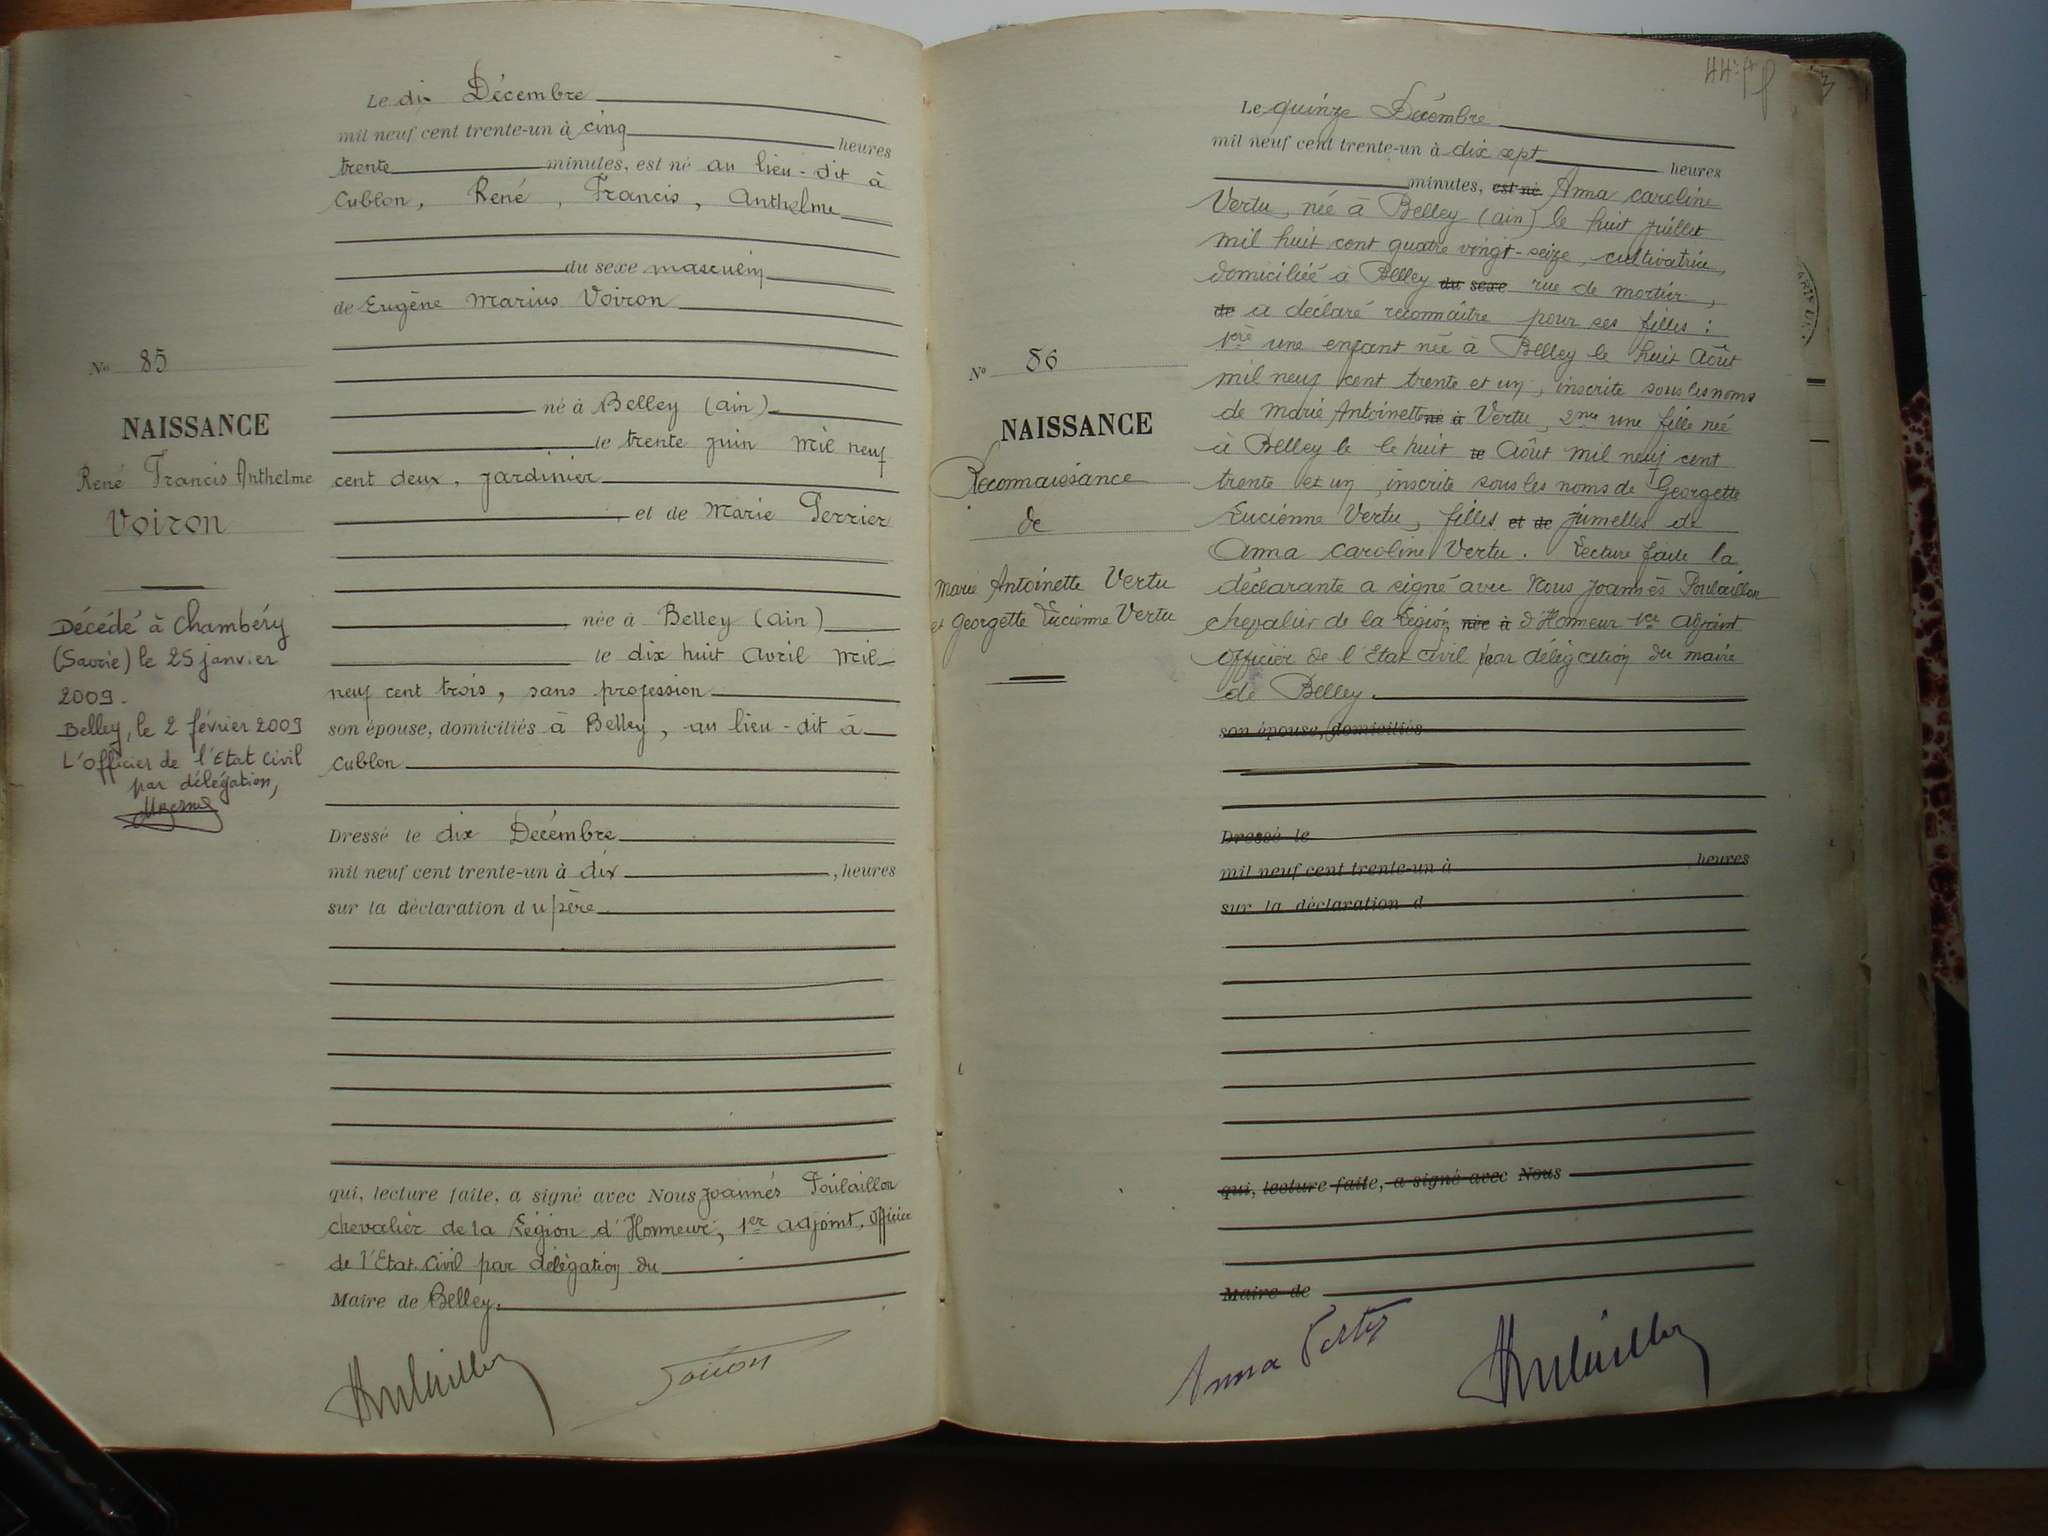 Le dix Décembre
mil neuf cent trente-un à cinq heures
trente minutes, est né au lieu-dit à
Cublon, René, Francis, Anthelme
du sexe masculin
de Eugène Marius Voiron
né à Belley (ain)
le trente juin mil neuf
cent deux, jardinier
et de Marie Perrier
née à Belley (ain)
le dix huit Avril mil
neuf cent trois, sans profession
son épouse, domiciliés à Belley, au lieu-dit à
Cublon
Dressé le dix Decémbre
mil neuf cent trente-un à dix, heures
sur la déclaration du père
qui, lecture faite, a signé avec Nous Joannès Poulaillon
chevalier de la Légion d'Honneur, 1er adjoint, officier
de l'Etat Civil par délégation du
Maire de Belley.
No 85
NAISSANCE
René Francis Anthelme
Voiron
Décédé à Chambéry
(Savoie) le 25 janvier
2009.
Belley, le 2 février 2009
L'Officier de l'Etat Civil
par délégation,
Le quinze Décembre
mil neuf cent trente-un à dix sept heures
minutes, est né Anna caroline
Vertu, née à Belley (ain) le huit juillet
mil huit cent quatre vingt-seize, cultivatrice,
domiciliée à Belley du sexe rue de mortier,
de a déclaré reconnaître pour ses filles :
1ère une enfant née à Belley le huit Août
mil neuf cent trente et un, inscrite sous les noms
de Marie Antoinette né à Vertu, 2me une fille née
à Belley le le huit le Août mil neuf cent
trente et un, inscrite sous les noms de Georgette
Lucienne Vertu, filles et de jumelles de
Anna caroline Vertu. Lecture faite la
déclarante a signé avec Nous Joannès Poulaillon
chevalier de la Légion née à d'Honneur 1er adjoint
officier de l'Etat civil par délégation du maire
de Belley.
son épouse, domiciliés
Dressé le
mil neuf cent trente-un à heures
sur la déclaration d
qui, lecture faite, a signé avec Nous
Maire de
Anna Vertu
No 86
NAISSANCE
Reconnaissance
de
Marie Antoinette Vertu
et Georgette Lucienne Vertu